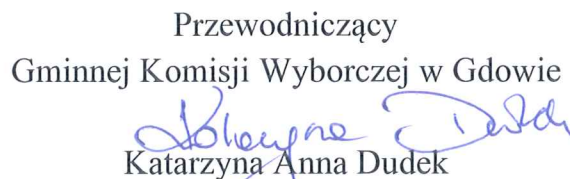 Przewodniczący
Gminnej Komisji Wyborczej w Gdowie
Katarzyna Dudek
Katarzyna Anna Dudek